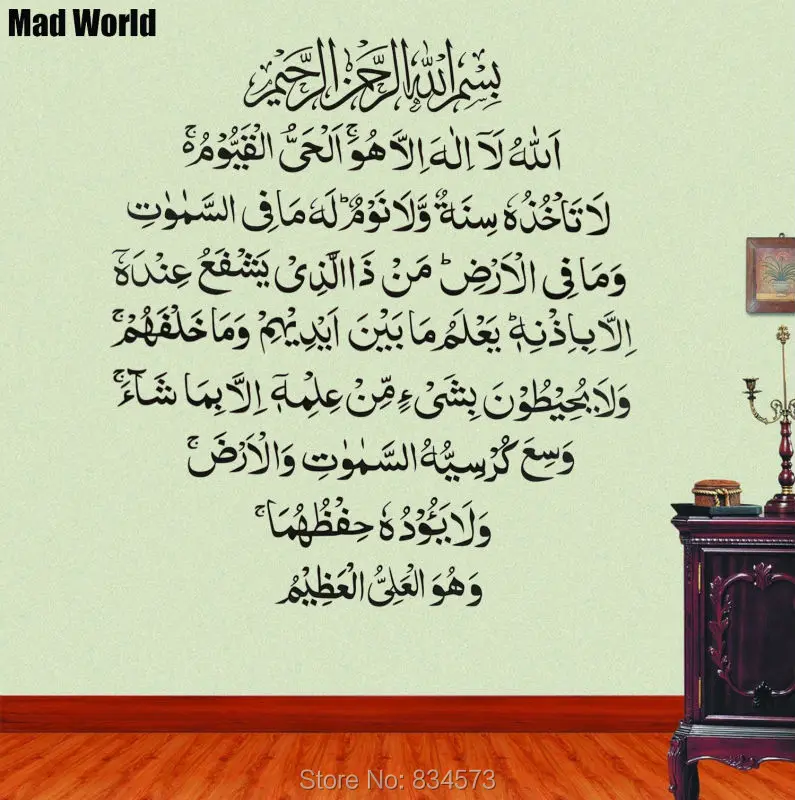 Mad World
بِسْمِ اللهِ الرَّحْمٰنِ الرَّحِيْمِ
اَللهُ لَآ اِلٰهَ اِلَّا هُوَۚ اَلْحَىُّ الْقَيُّوْمُ ۚ
لَا تَاْخُذُهٗ سِنَةٌ وَّلَا نَوْمٌؕ لَهٗ مَا فِى السَّمٰوٰتِ
وَمَا فِى الْاَرْضِؕ مَنْ ذَا الَّذِىْ يَشْفَعُ عِنْدَهٗٓ
اِلَّا بِاِذْنِهٖؕ يَعْلَمُ مَا بَيْنَ اَيْدِيْهِمْ وَمَا خَلْفَهُمْۚ
وَلَا يُحِيْطُوْنَ بِشَىْءٍ مِّنْ عِلْمِهٖٓ اِلَّا بِمَا شَآءَۚ
وَسِعَ كُرْسِيُّهُ السَّمٰوٰتِ وَالْاَرْضَۚ
وَلَا يَـُٔوْدُهٗ حِفْظُهُمَاۚ
وَهُوَ الْعَلِىُّ الْعَظِيْمُ
Store No: 834573